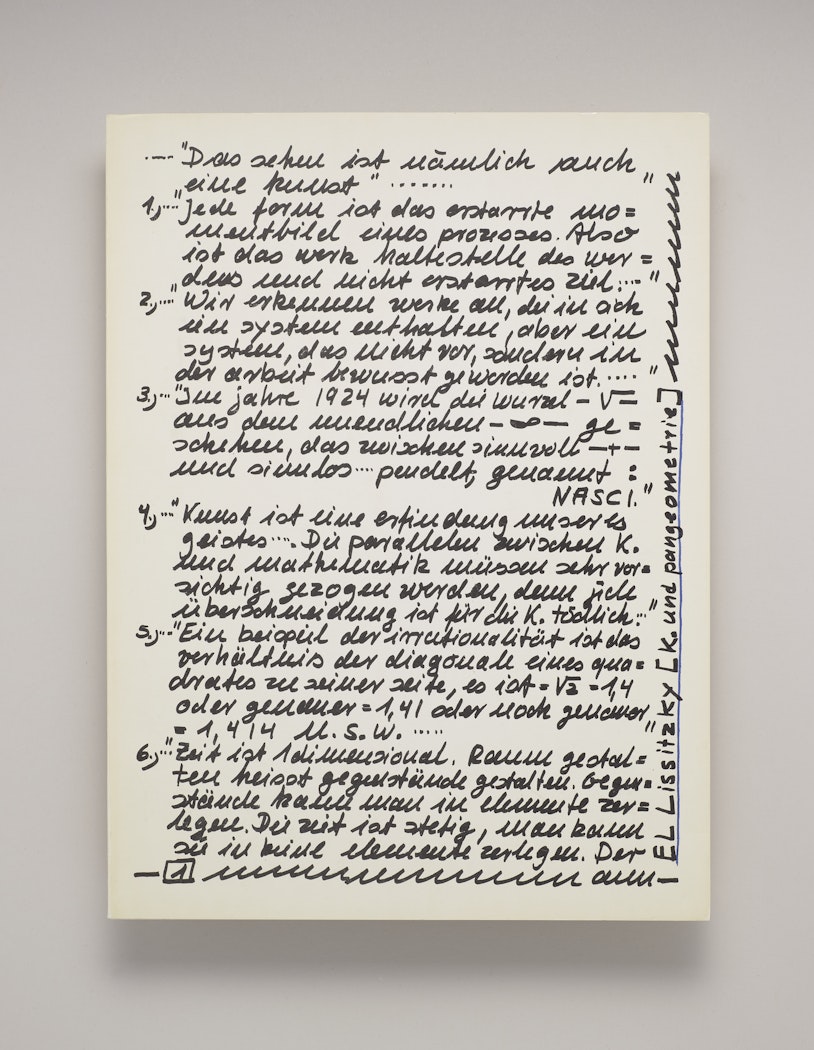 ·—·- "Das sehen ist nämlich auch
eine kunst" ·······
1.,···"Jede form ist das erstarrte mo=
mentbild eines prozesses. Also
ist das werk haltestelle des wer=
dens und nicht erstarrtes ziel.··-"
2.,···"Wir erkennen werke an, die in sich
ein system enthalten, aber ein
system, das nicht vor, sondern in
der arbeit bewusst geworden ist.····"
3.,···"Im jahre 1924 wird die wurzel – √ —
aus dem unendlichen – ∞ — ge=
schehen, das zwischen sinnvoll —+—
und sinnlos ···· pendelt, genannt :
NASCI."
4.,···"Kunst ist eine erfindung unseres
geistes···. Die parallelen zwischen K.
und mathematik müssen sehr vor=
sichtig gezogen werden, denn jede
überschneidung ist für die K. tödlich.··"
5.,···"Ein beispiel der irrationalität ist das
verhältnis der diagonale eines qua=
drates zu seiner seite, es ist = √2 = 1,4
oder genauer = 1,41 oder noch genauer
= 1,414 u.s.w. ·····"
6.,···"Zeit ist 1dimensional. Raum gestal=
ten heisst gegenstände gestalten. Gegen=
stände kann man in elemente zer=
legen. Die zeit ist stetig, man kann
sie in keine elemente zerlegen. Der
— 1 aun—
EL Lissitzky [K. und pangeometrie]